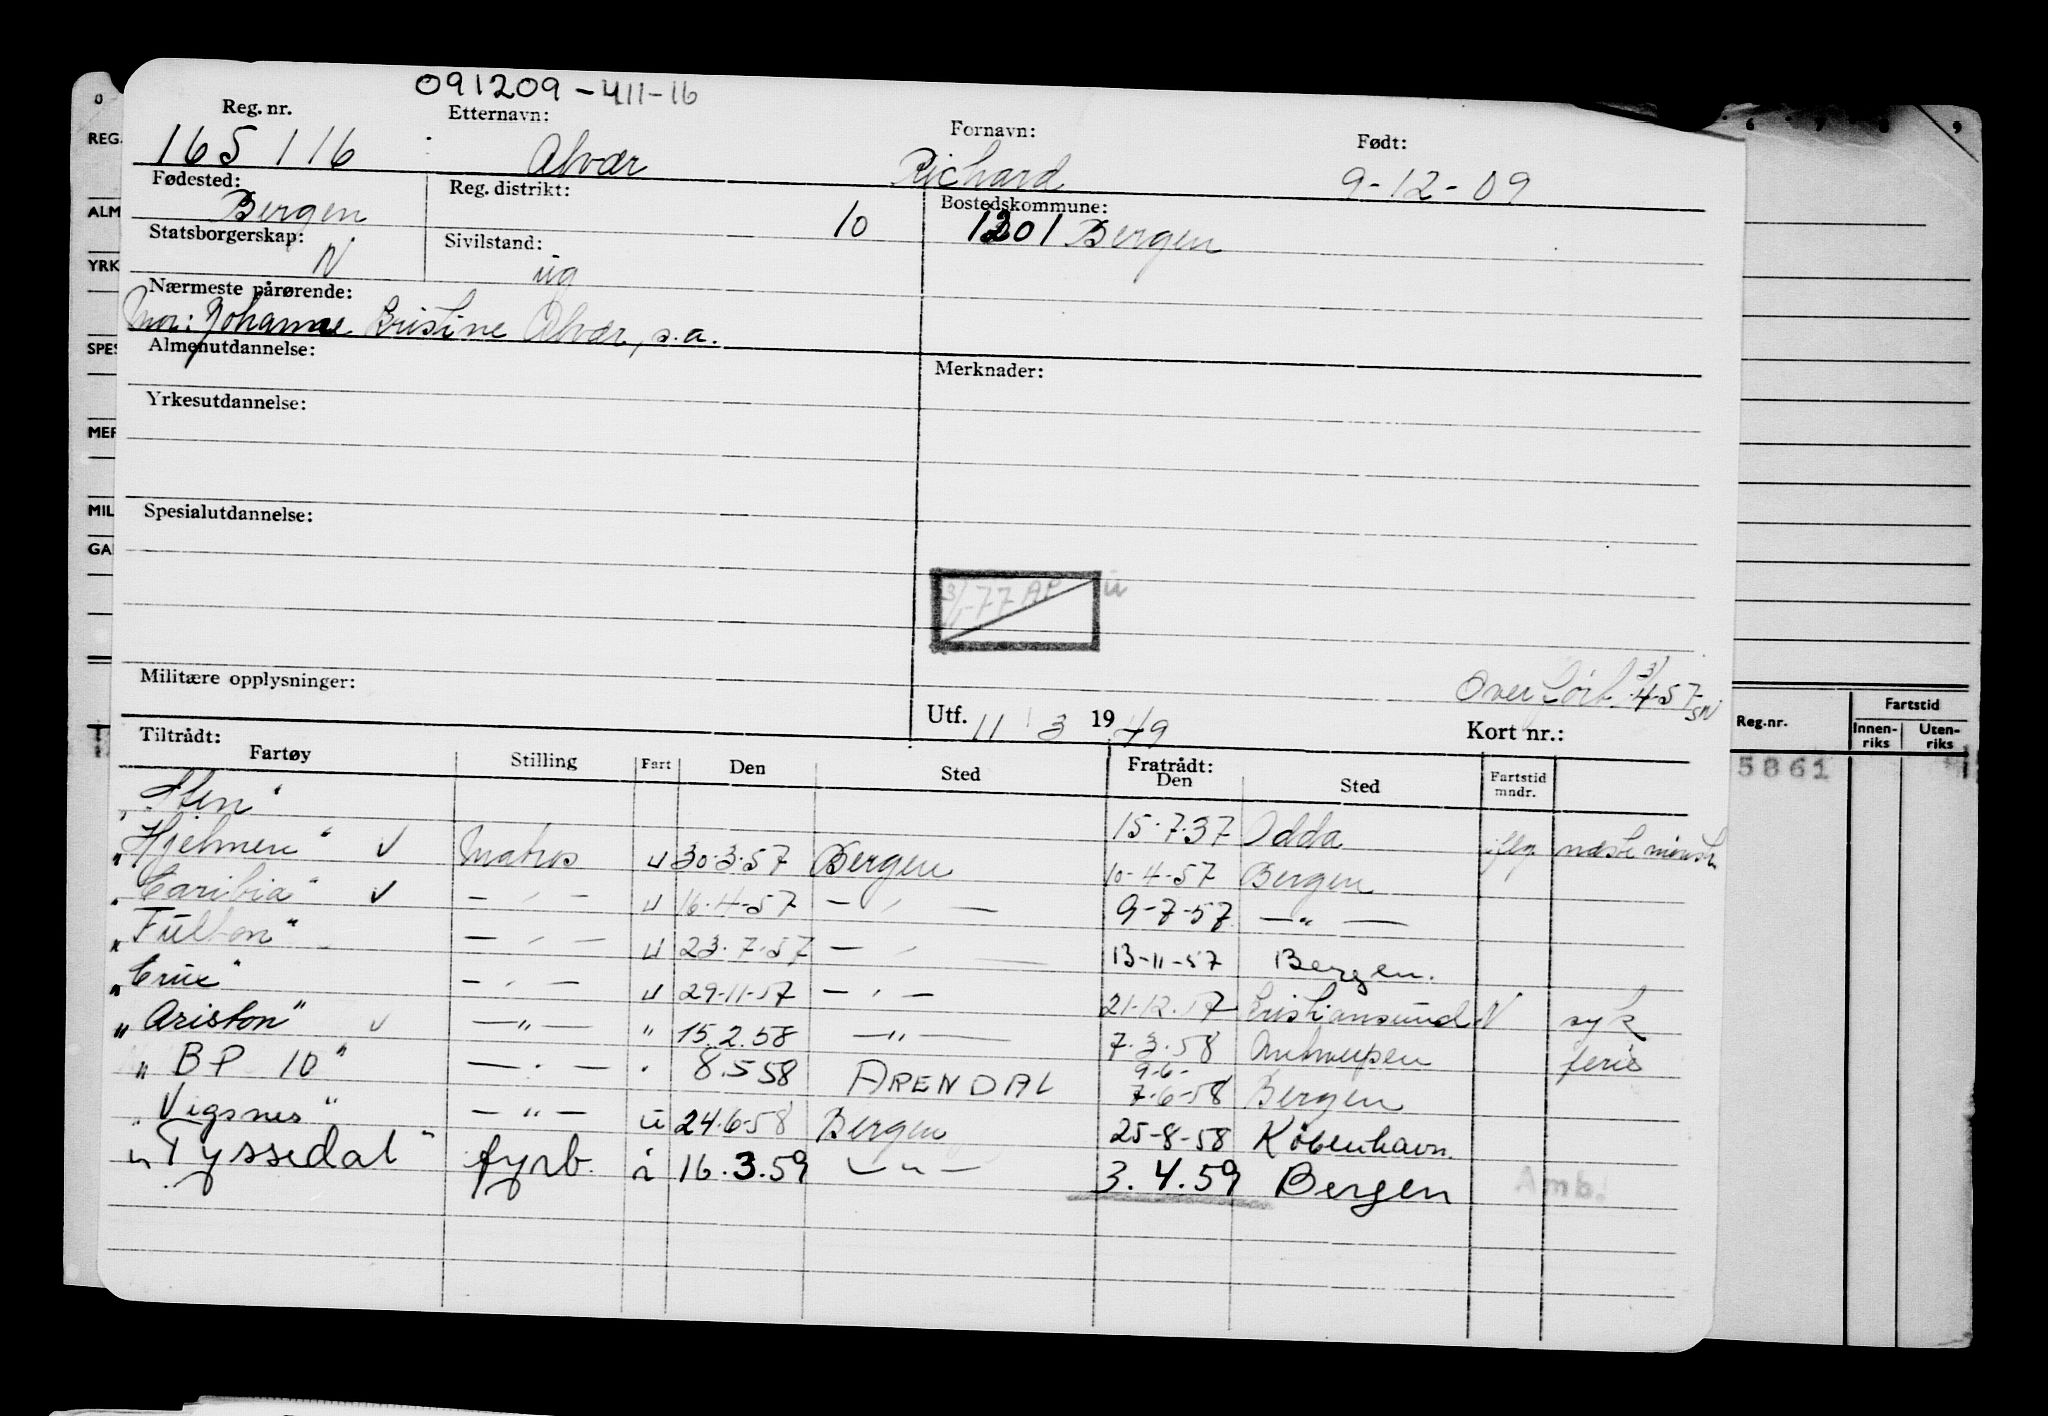 091209-411-16
Reg. nr. Etternavn: Fornavn: Født:
165 116 Alvær Richard 9-12-09
Fødested: Reg. distrikt: Bostedskommune:
Bergen 10 1201 Bergen
Statsborgerskap: Sivilstand:
N ug
Nærmeste pårørende:
Mor: Johanne Kristine Alvær, s.a.
Almenutdannelse: Merknader:
Yrkesutdannelse:
Spesialutdannelse:
3/1-77 AP ü
Militære opplysninger: Overført 3/4-57 SN
Utf. 11/3 1949 Kort nr.:
Tiltrådt: Fratrådt:
Fartøy Stilling Fart Den Sted Den Sted Fartstid mndr.
"Sten" 15.7.37 Odda iflg næste mønstr.
"Hjelmen" √ Matros u 30.3.57 Bergen 10-4-57 Bergen
"Caribia" √ — " — u 16.4-57 — " — 9-7-57 — " —
"Fulton" — " — u 23.7.57 — " — 13-11-57 Bergen.
"Crux" — " — u 29-11-57 — " — 21-12.57 Kristiansund N syk
"Ariston" √ — " — " 15.2.58 — " — 7.3.58 Antwerpen ferie
"BP 10" — " — " 8.5.58 ARENDAL 9-6- 7-6-58 Bergen
"Vigsnes" — " — u 24.6-58 Bergen 25-8-58 København.
"Tyssedal" fyrb. i 16.3.59 — " — 3.4.59 Bergen Amb.
REG.
ALM
YRK
SPES
MER
MIL
GA
Reg.nr. Fartstid
Innen-riks Uten-riks
5861